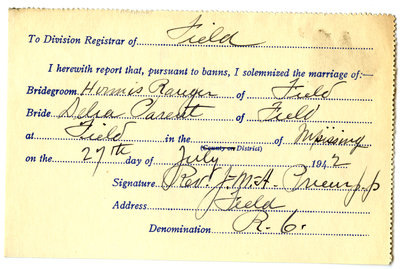 To Division Registrar of Field
I herewith report that, pursuant to banns, I solemnized the marriage of:—
Bridegroom Hormis Ranger of Field
Bride Delia Parent of Field
at Field in the (County or District) of Nipissing
on the 27th day of July 1942
Signature Rev. J-M-A. p.p
Address Field
Denomination R. C.